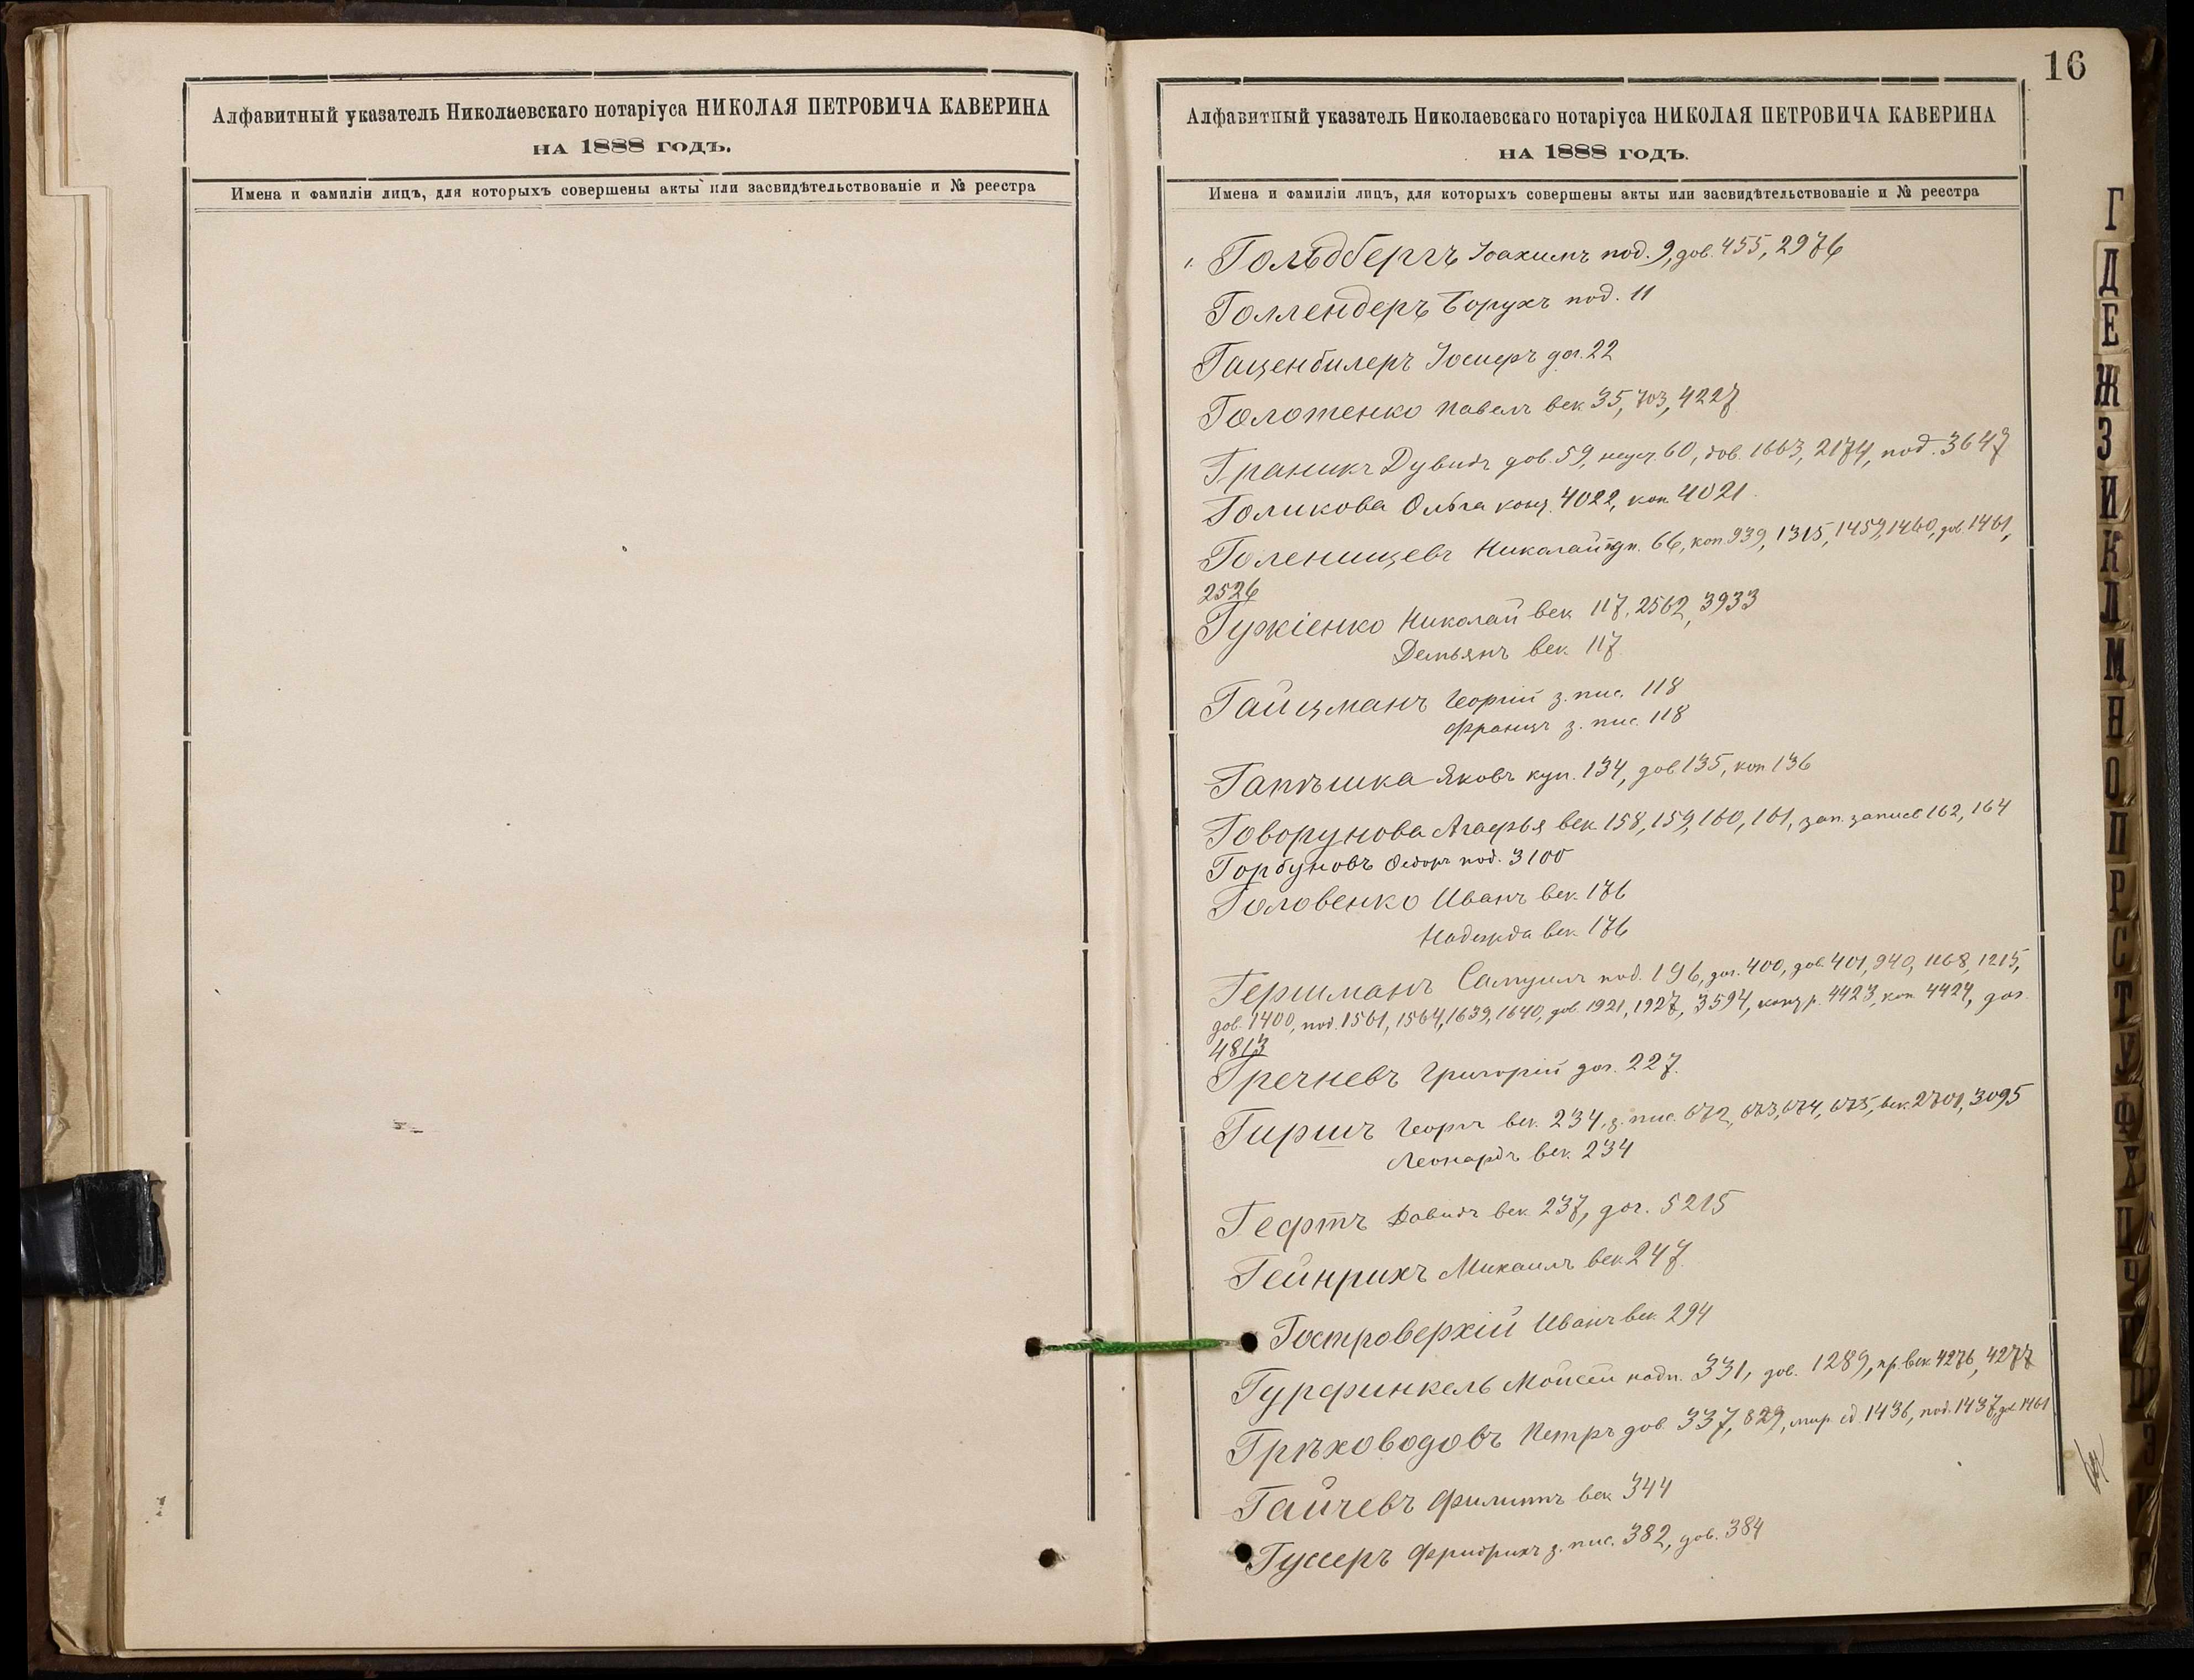 Алфавитный указатель Николаевскаго нотаріуса НИКОЛАЯ ПЕТРОВИЧА КАВЕРИНА
НА 1888 ГОДЪ.
Имена и фамиліи лицъ, для которыхъ совершены акты или засвидѣтельствованіе и № реестра
16
Алфавитный указатель Николаевскаго нотаріуса НИКОЛАЯ ПЕТРОВИЧА КАВЕРИНА
НА 1888 ГОДЪ.
Имена и фамиліи лицъ, для которыхъ совершены акты или засвидѣтельствованіе и № реестра
Гольдбергъ Іоахимъ под. 9, дов. 455, 2976
Голлендеръ Борухъ под. 11
Гаценбилеръ Іосифъ дог. 22
Голотенко Павелъ век. 35, 703, 4227
Граникъ Дувидъ дов. 59, 60, дов. 1663, 2174, под. 3647
Голикова Ольга 4022, коп. 4021
Голенищевъ Николай 66, коп. 939, 1315, 1459, 1460, дов. 1461,
2526
Гужіенко Николай век. 117, 2562, 3933
Демьянъ век. 117
Гайцманъ Георгій з. пис. 118
Францъ з. пис. 118
Гапѣшка Яковъ куп. 134, дов. 135, коп. 136
Говорунова Агафья век. 158, 159, 160, 161, зап. 162, 164
Горбуновъ Ѳедоръ под. 3100
Головенко Иванъ век. 176
Надежда век. 176
Гершманъ Самуилъ под. 196, дог. 400, дов. 401, 940, 1168, 1215,
дов. 1400, под. 1561, 1564, 1639, 1640, дов. 1921, 1927, 3594, 4423, коп. 4424, дог.
4813
Гречневъ Григорій дог. 227.
Гиршъ Георгъ век. 234, з. пис. 672, 673, 674, 675, век. 2701, 3095
Леонардъ век. 234
Гефтъ Давидъ век. 237, дог. 5215
Гейнрихъ Михаилъ век. 247.
Гостроверхій Иванъ век. 294
Гурфинкель Мойсей надп. 331, дов. 1289, пр. век. 4276, 4277
Грѣховодовъ Петръ дов. 337, 829, мир. сд. 1436, под. 1437, дов. 1461
Гайчевъ Филиппъ век. 344
Гуссеръ Фридрихъ з. пис. 382, дов. 384
Г
Д
Е
Ж
З
И
К
Л
М
Н
О
П
Р
С
Т
У
Ф